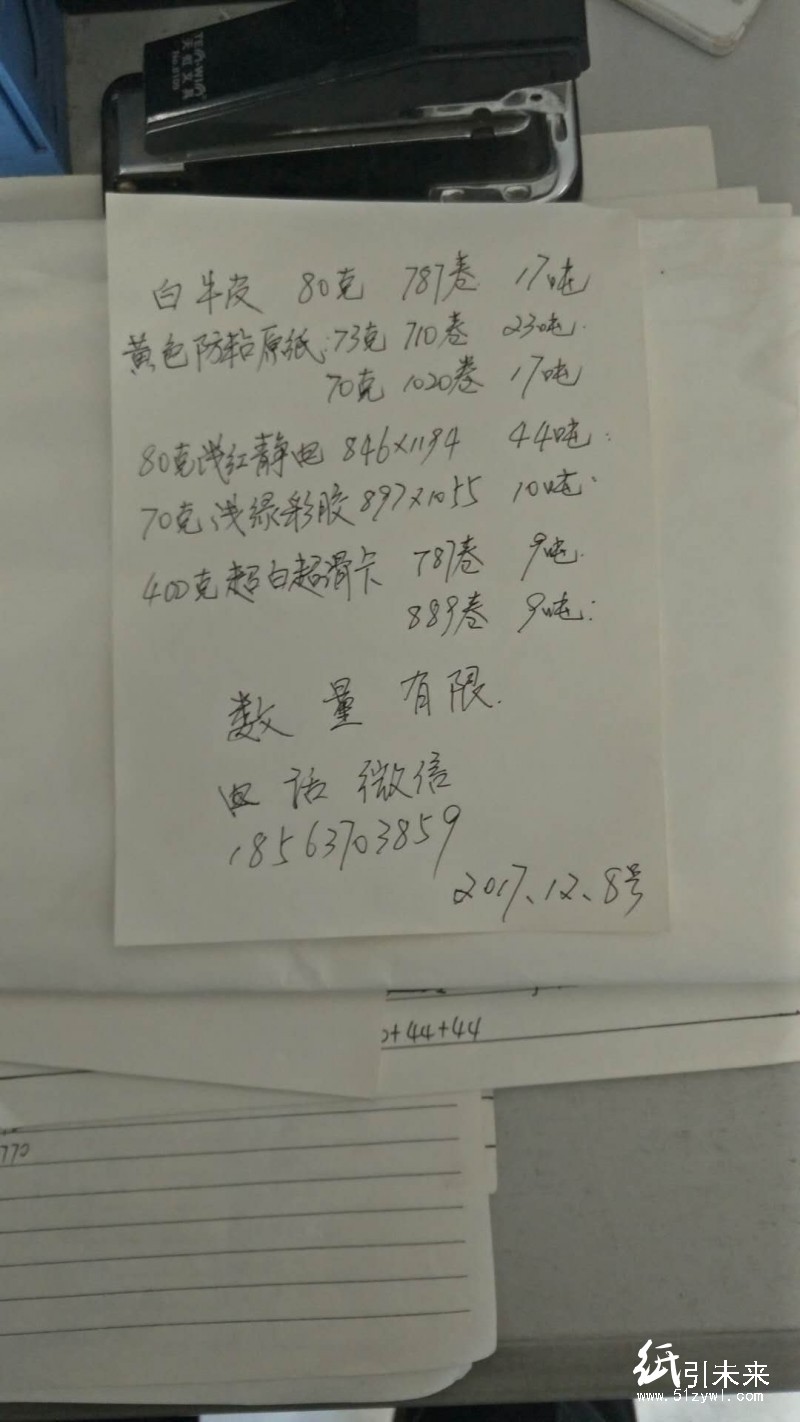 TEN-WIN
天虹文具
白牛皮 80克 787卷 17吨
黄色防粘原纸:73克 710卷 23吨.
70克 1020卷 17吨
80克浅红静电 846×1194 44吨:
70克浅绿彩胶 897×1055 10吨.
400克超白超滑卡 787卷 9吨.
889卷 9吨:
数量有限.
电话微信
18563703859
2017、12、8号
+44+44
770
纸引未来
www.51zywl.com